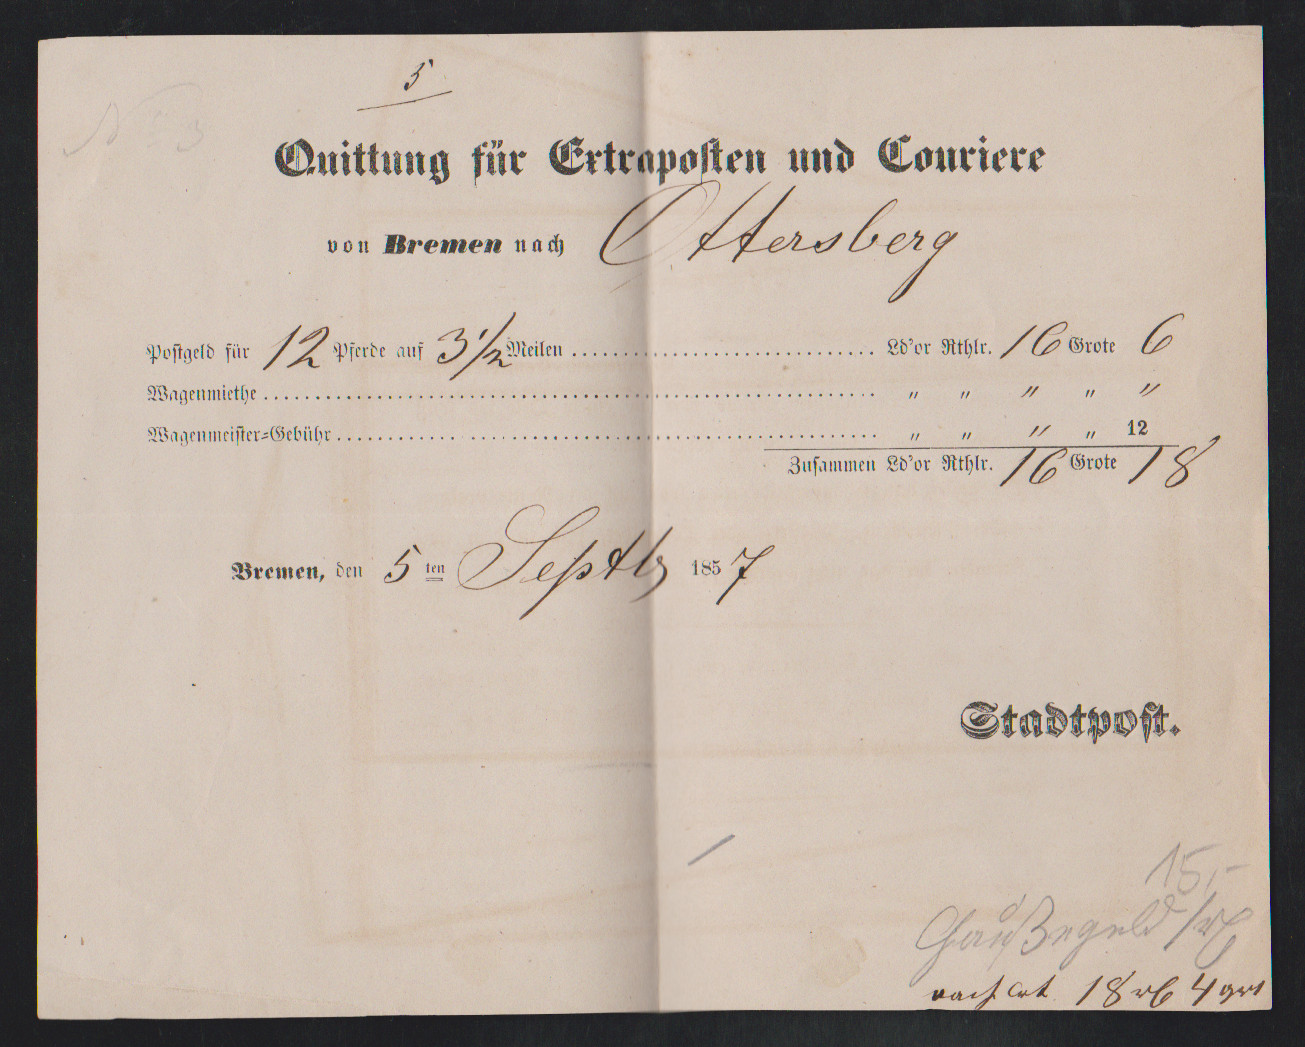 5
Quittung für Extraposten und Couriere
von Bremen nach Ottersberg
Postgeld für 12 Pferde auf 3 1/2 Meilen .............................. Ld'or Rthlr. 16 Grote 6
Wagenmiethe .............................. „ „ „ „ „
Wagenmeister=Gebühr .............................. „ „ „ „ 12
Zusammen Ld'or Rthlr. 16 Grote 18
Bremen, den 5 ten Septb 1857
Stadtpost.
15,-
Chaußegeld
18 4